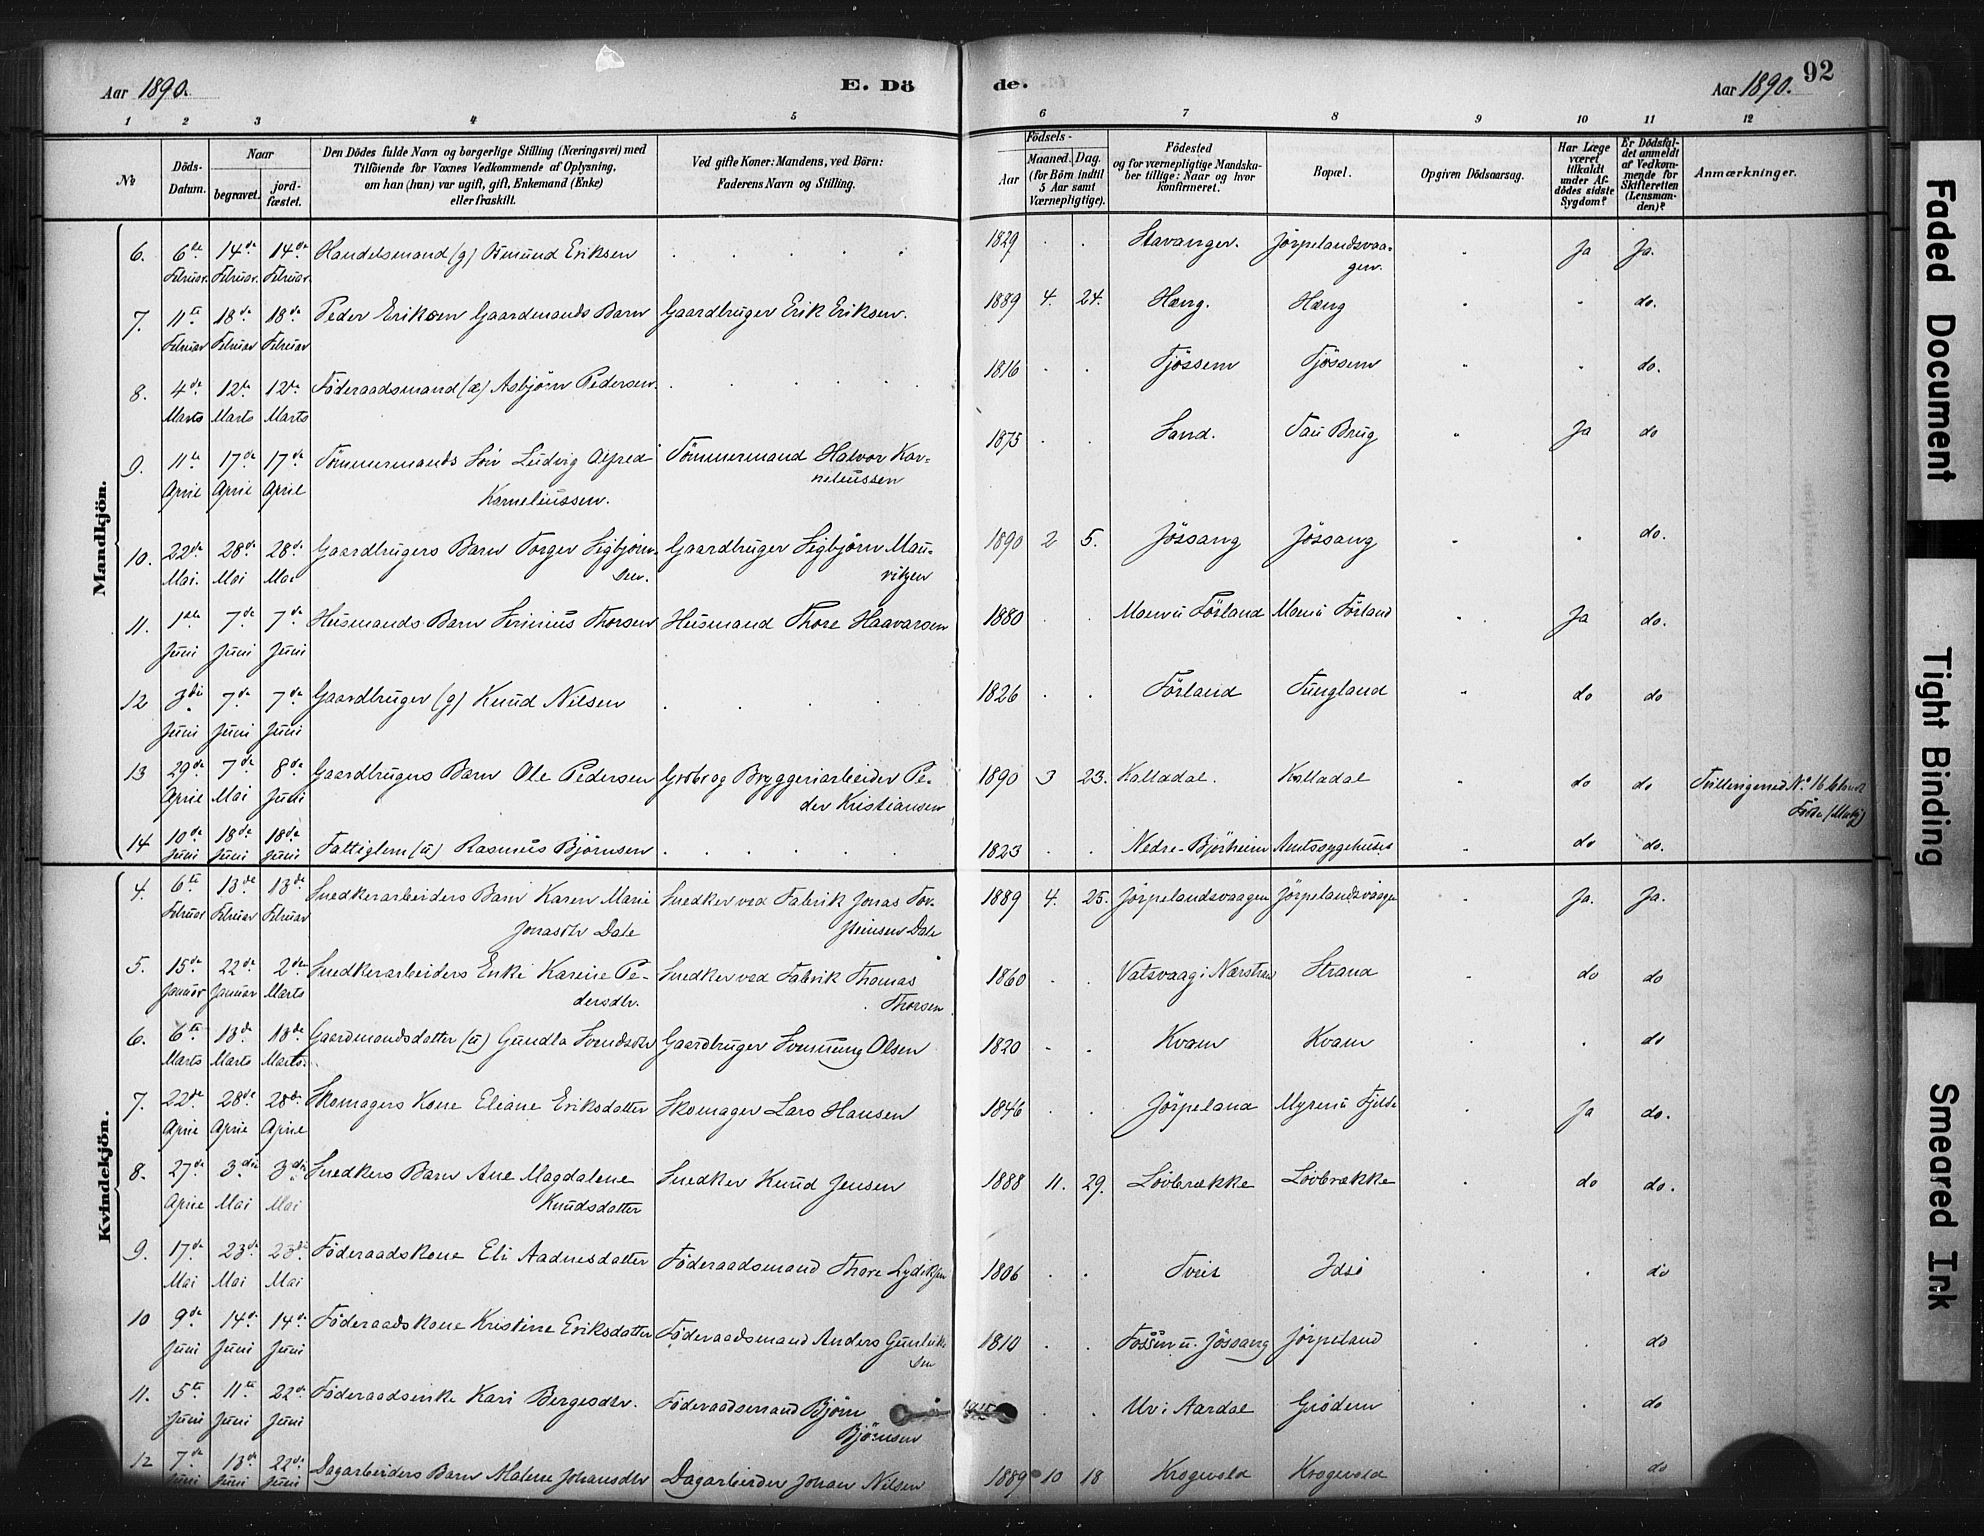 Aar 1890.
E. Dö
de.
Aar 1890.
92
1 2 3 4 5 6 7 8 9 10 11 12
№
Döds-
Datum.
Naar
begravet.
jord-
fæstet.
Den Dödes fulde Navn og borgerlige Stilling (Næringsvei) med
Tilföiende for Voxnes Vedkommende af Oplysning,
om han (hun) var ugift, gift, Enkemand (Enke)
eller fraskilt.
Ved gifte Koner: Mandens, ved Börn:
Faderens Navn og Stilling.
Födsels-
Aar
Maaned. Dag.
(for Börn indtil
5 Aar samt
Værnepligtige).
Födested
og for værnepligtige Mandska-
ber tillige: Naar og hvor
konfirmeret.
Bopæl.
Opgiven Dödsaarsag.
Har Læge
været
tilkaldt
under Af-
dödes sidste
Sygdom?
Er Dödsfal-
det anmeldt
af Vedkom-
mende for
Skifteretten
(Lensman-
den)?
Anmærkninger.
Mandkjön.
6. 6te Februar. 14de Februar. 14de Februar. Handelsmand (g) Amund Eriksen 1829 Stavanger. Jörpelandsvaa-
gen. Ja Ja.
7. 11te Februar 18de Februar 18de Februar Peder Eriksen Gaardmands Barn Gaardbruger Erik Eriksen. 1889 4. 24. Heng. Heng do.
8. 4de Marts 12te Marts 12te Marts Föderaadsmand (æ) Asbjörn Pedersen 1816 Tjössem Tjössem do.
9. 11te April 17de April 17de April Tömmermands Sön Ludvig Alfred
Karneliussen. Tömmermand Halvor Kar-
neliussen 1875 Sand. Tau Brug Ja do
10. 22de Mai. 28de Mai 28de Mai Gaardbrugers Barn Torger Sigbjörn-
sen. Gaardbruger Sigbjörn Mau-
ritzen 1890 2 5. Jössang Jössang do.
11. 1ste Juni 7de Juni 7de Juni Husmands Barn Severinius Thorsen Husmand Thore Haavarsen 1880 Förland Förland Ja do.
12 3die Juni 7de Juni 7de Juni Gaardbruger (g) Knud Nilsen 1826 Förland Tungland do do
13 29de April 7de Mai 8de Juni Gaardbrugers Barn Ole Pedersen Grbr og Bryggeriarbeider Pe-
der Kristiansen 1890 3 23. Kalladal. Kalladal do do Tvillinge med No 16 blandt
Födte (Mdkj)
14 10de Juni 18de Juni 18de Juni Fattiglem (u) Rasmus Björnsen 1823 Nedre-Björheim Amtssygehuset do do.
Kvindekjön.
4. 6te Februar 13de Februar 13de Februar Snedkerarbeiders Barn Karen Marie
Jonasdtr Dale Snedker ved Fabrik Jonas Tor-
steinsen Dale 1889 4. 25. Jörpelandsvaagen Jörpelandsvaagen Ja. Ja.
5. 15de Januar 22de Januar 2den Marts Snedkerarbeiders Enke Karine Pe-
dersdtr. Snedker ved Fabrik Thomas
Thorsen 1860 Vatsvaag i Nærstrand Strand do do
6. 6te Marts 13de Marts 13de Marts. Gaardmandsdatter (u) Gundla Svendsdtr Gaardbruger Svennung Olsen 1820 Kvam Kvam do
7. 22de April 28de April 28de April Skomagers Kone Eliane Eriksdatter Skomager Lars Hansen 1846 Jörpeland Myren u Fjelde Ja do.
8. 27de April 3die Mai 3die Mai Snedkers Barn Ane Magdalene
Knudsdatter Snedker Knud Jensen 1888 11. 29. Lövbrække Lövbrække do do.
9. 17de Mai 23de Mai 23de Mai Föderaadskone Eli Aadnesdatter Föderaadsmand Thore Lydiksen 1806 Tveit Idsö do
10 9de Juni 14de Juni 14de Juni Föderaadskone Kristine Eriksdatter Föderaadsmand Anders Gunleik-
sen 1810 Fossen u. Jössang Jörpeland do
11. 5te Juni 11te Juni 22de Juni Föderaadsenke Kari Bergesdtr. Föderaadsmand Björn
Björnsen Ur i Aardal Gröden do
12 7de Juni 13de Juni 22de Juni Dagarbeiders Barn Malene Johansdtr Dagarbeider Johan Nilsen 1889 10 18 Krogevold Krogevold do
Faded Document
Tight Binding
Smeared Ink